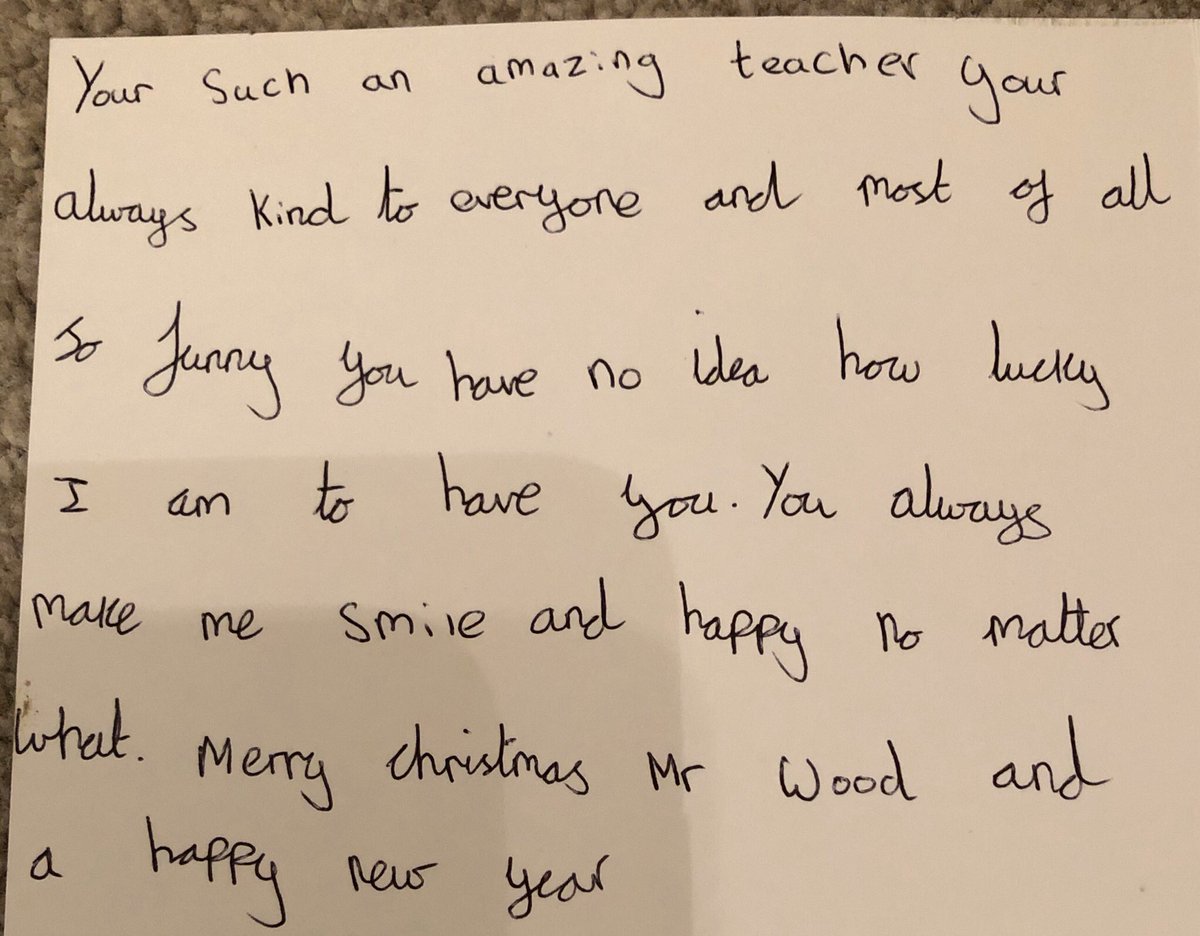 Your such an amazing teacher your
always kind to everyone and most of all
so funny you have no idea how lucky
I am to have you. You always
make me smile and happy no matter
what. Merry christmas Mr Wood and
a happy new year